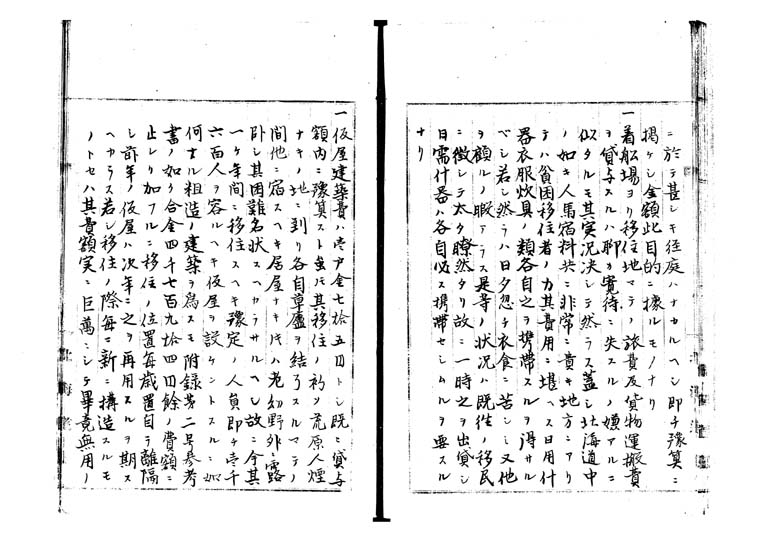 ニ於テ甚シキ径庭ハナカルヘシ即チ豫算ニ
掲ケシ金額此目的ニ據ルモノナリ
一着船場ヨリ移住地マテノ旅費及貨物運搬費
ヲ貸与スルハ聊カ寛待ニ失スルノ嫌アルニ
似タルモ其実況決シテ然ラス蓋シ北海道中
ノ如キ人馬宿料共ニ非常ニ貴キ地方ニアリ
テハ貧困移住者ノ力其費用ニ堪ヘス日用什
器衣服炊具ノ類各自之ヲ携帯スルヲ得サル
ベシ若シ然ラハ日夕忽チ衣食ニ苦シミ又他
ヲ顧ルノ暇アラス是等ノ状況ハ既往ノ移民
ニ徴シテ太タ瞭然タリ故ニ一時之ヲ出貸シ
日需什器ハ各自必ス携帯セシムルヲ要スル
ナリ
一仮屋建築費ハ壱戸金七拾五円トシ既ニ貸与
額内ニ豫算スト虽モ其移住ノ初メ荒原人煙
ナキノ地ニ到リ各自草廬ヲ結フスルマテノ
間他ニ宿スヘキ居屋ナキ片ハ老幼野外ニ露
卧シ其困難名状スヘカラサルヘシ故ニ今其
一ヶ年間ニ移住スヘキ豫定ノ人員即チ壱千
六百人ヲ容ルヘキ仮屋ヲ設ケントスルニ如
何ナル粗造ノ建築ヲ為スモ附録第二号参考
書ノ如ク合金四千七百九拾四円餘ノ費額ニ
止レリ加フルニ移住ノ位置毎歳置自ラ離隔
シ前年ノ仮屋ハ次年ニ之ヲ再用スルヲ期ス
ヘカラス若シ移住ノ際毎ニ新ニ構造スルモ
ノトセハ其費額実ニ巨萬ニシテ畢竟無用ノ